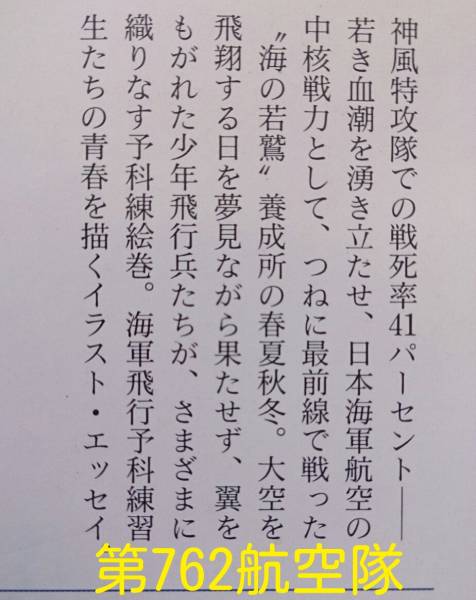 神風特攻隊での戦死率41パーセント――
若き血潮を湧き立たせ、日本海軍航空の
中核戦力として、つねに最前線で戦った
〝海の若鷲〟養成所の春夏秋冬。大空を
飛翔する日を夢見ながら果たせず、翼を
もがれた少年飛行兵たちが、さまざまに
織りなす予科練絵巻。海軍飛行予科練習
生たちの青春を描くイラスト・エッセイ
第762航空隊